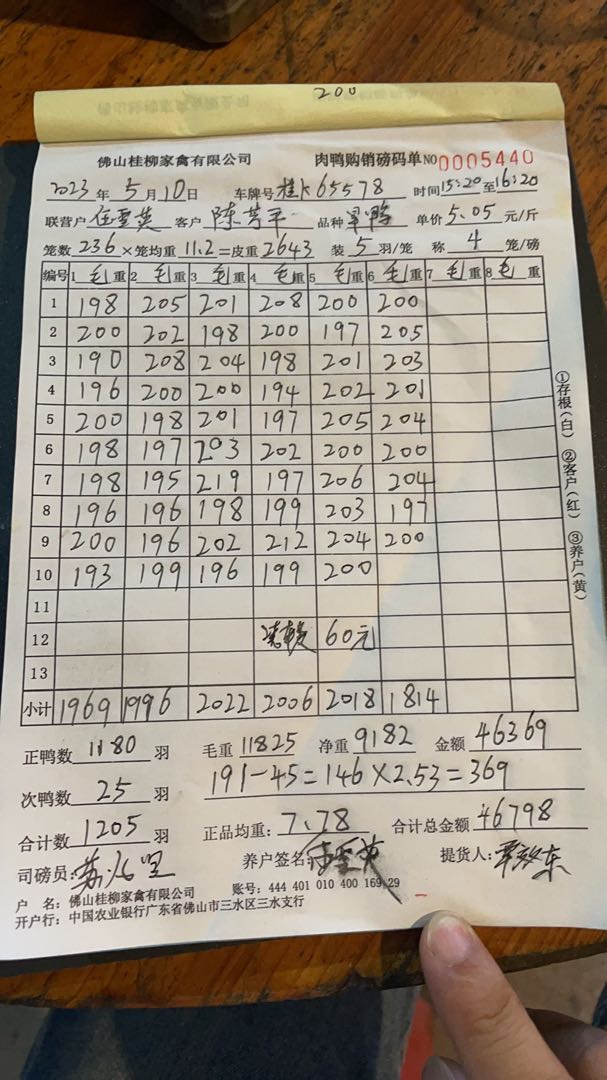 200
佛山桂柳家禽有限公司 肉鸭购销磅码单 NO 0005440
2023年5月10日 车牌号 桂K65578 时间15:20至16:20
联营户 客户 陈 平 品种 鸭 单价5.05元/斤
笼数 236 ×笼均重 11.2 =皮重 2643 装 5 羽/笼 称 4 笼/磅
编号 1 毛重 2 毛重 3 毛重 4 毛重 5 毛重 6 毛重 7 毛重 8 毛重
1 198 205 201 208 200 200
2 200 202 198 200 197 205
3 190 208 204 198 201 203
4 196 200 200 194 202 201
5 200 198 201 197 205 204
6 198 197 203 202 200 200
7 198 195 219 197 206 204
8 196 196 198 199 203 197
9 200 196 202 212 204 200
10 193 199 196 199 200
11
12 60元
13
小计 1969 1996 2022 2006 2018 1814
①存根(白) ②客户(红) ③养户(黄)
正鸭数 1180 羽 毛重 11825 净重 9182 金额 46369
次鸭数 25 羽 191-45=146×2.53=369
合计数 1205 羽 正品均重: 7.78 合计总金额 46798
司磅员: 苏 养户签名: 提货人:
户 名: 佛山桂柳家禽有限公司 账号: 444 401 010 400 169 29
开户行: 中国农业银行广东省佛山市三水区三水支行